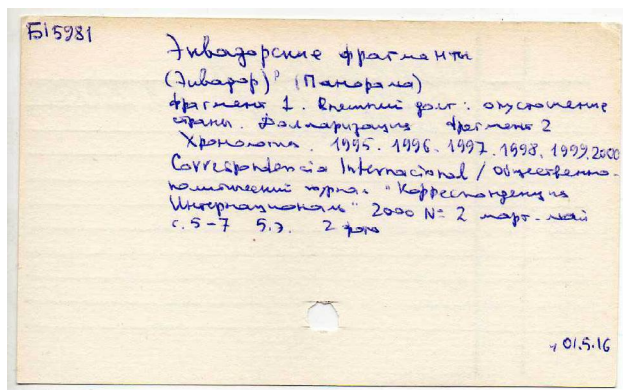 Б15981
Эквадорские фрагменты
(Эквадор) (Панорама)
Фрагмент 1. Внешний долг: опустошение
страны. Долларизация Фрагмент 2
Хронология. 1995. 1996. 1997. 1998. 1999. 2000
Correspondencia Internacional / Общественно-
политический журнал "Корреспонденция
Интернациональ" 2000 № 2 март-май
с. 5-7 5.э. 2 фото
01.5.16